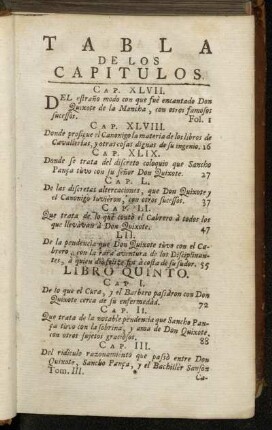 TABLA
DE LOS
CAPITULOS.
CAP. XLVII.
DEL estraño modo con que fuè encantado Don
Quixote de la Mancha, con otros famosos
sucessos. Fol. 1
CAP. XLVIII.
Donde prosigue el Canonigo la materia de los libros de
Cavallerias, y otras cosas dignas de su ingenio. 16
CAP. XLIX.
Donde se trata del discreto coloquio que Sancho
Pança tuvo con su señor Don Quixote. 27
CAP. L.
De las discretas altercaciones, que Don Quixote y
el Canonigo tuvieron, con otros sucessos. 37
CAP. LI.
Que trata de lo que contò el Cabrero à todos los
que llevavan à Don Quixote. 47
LII.
De la pendencia que Don Quixote tuvo con el Ca-
brero, con la rara aventura de los Disciplinan-
tes, à quien diò felice fin à costa de su sudor. 55
LIBRO QUINTO.
CAP. I.
De lo que el Cura, y el Barbero passaron con Don
Quixote cerca de su enfermedad. 72
CAP. II.
Que trata de la notable pendencia que Sancho Pan-
ça tuvo con la sobrina, y ama de Don Quixote,
con otros sujetos graciosos. 88
CAP. III.
Del ridiculo razonamiento que passò entre Don
Quixote, Sancho Pança, y el Bachiller Sansòn
Tom. III. Ca-